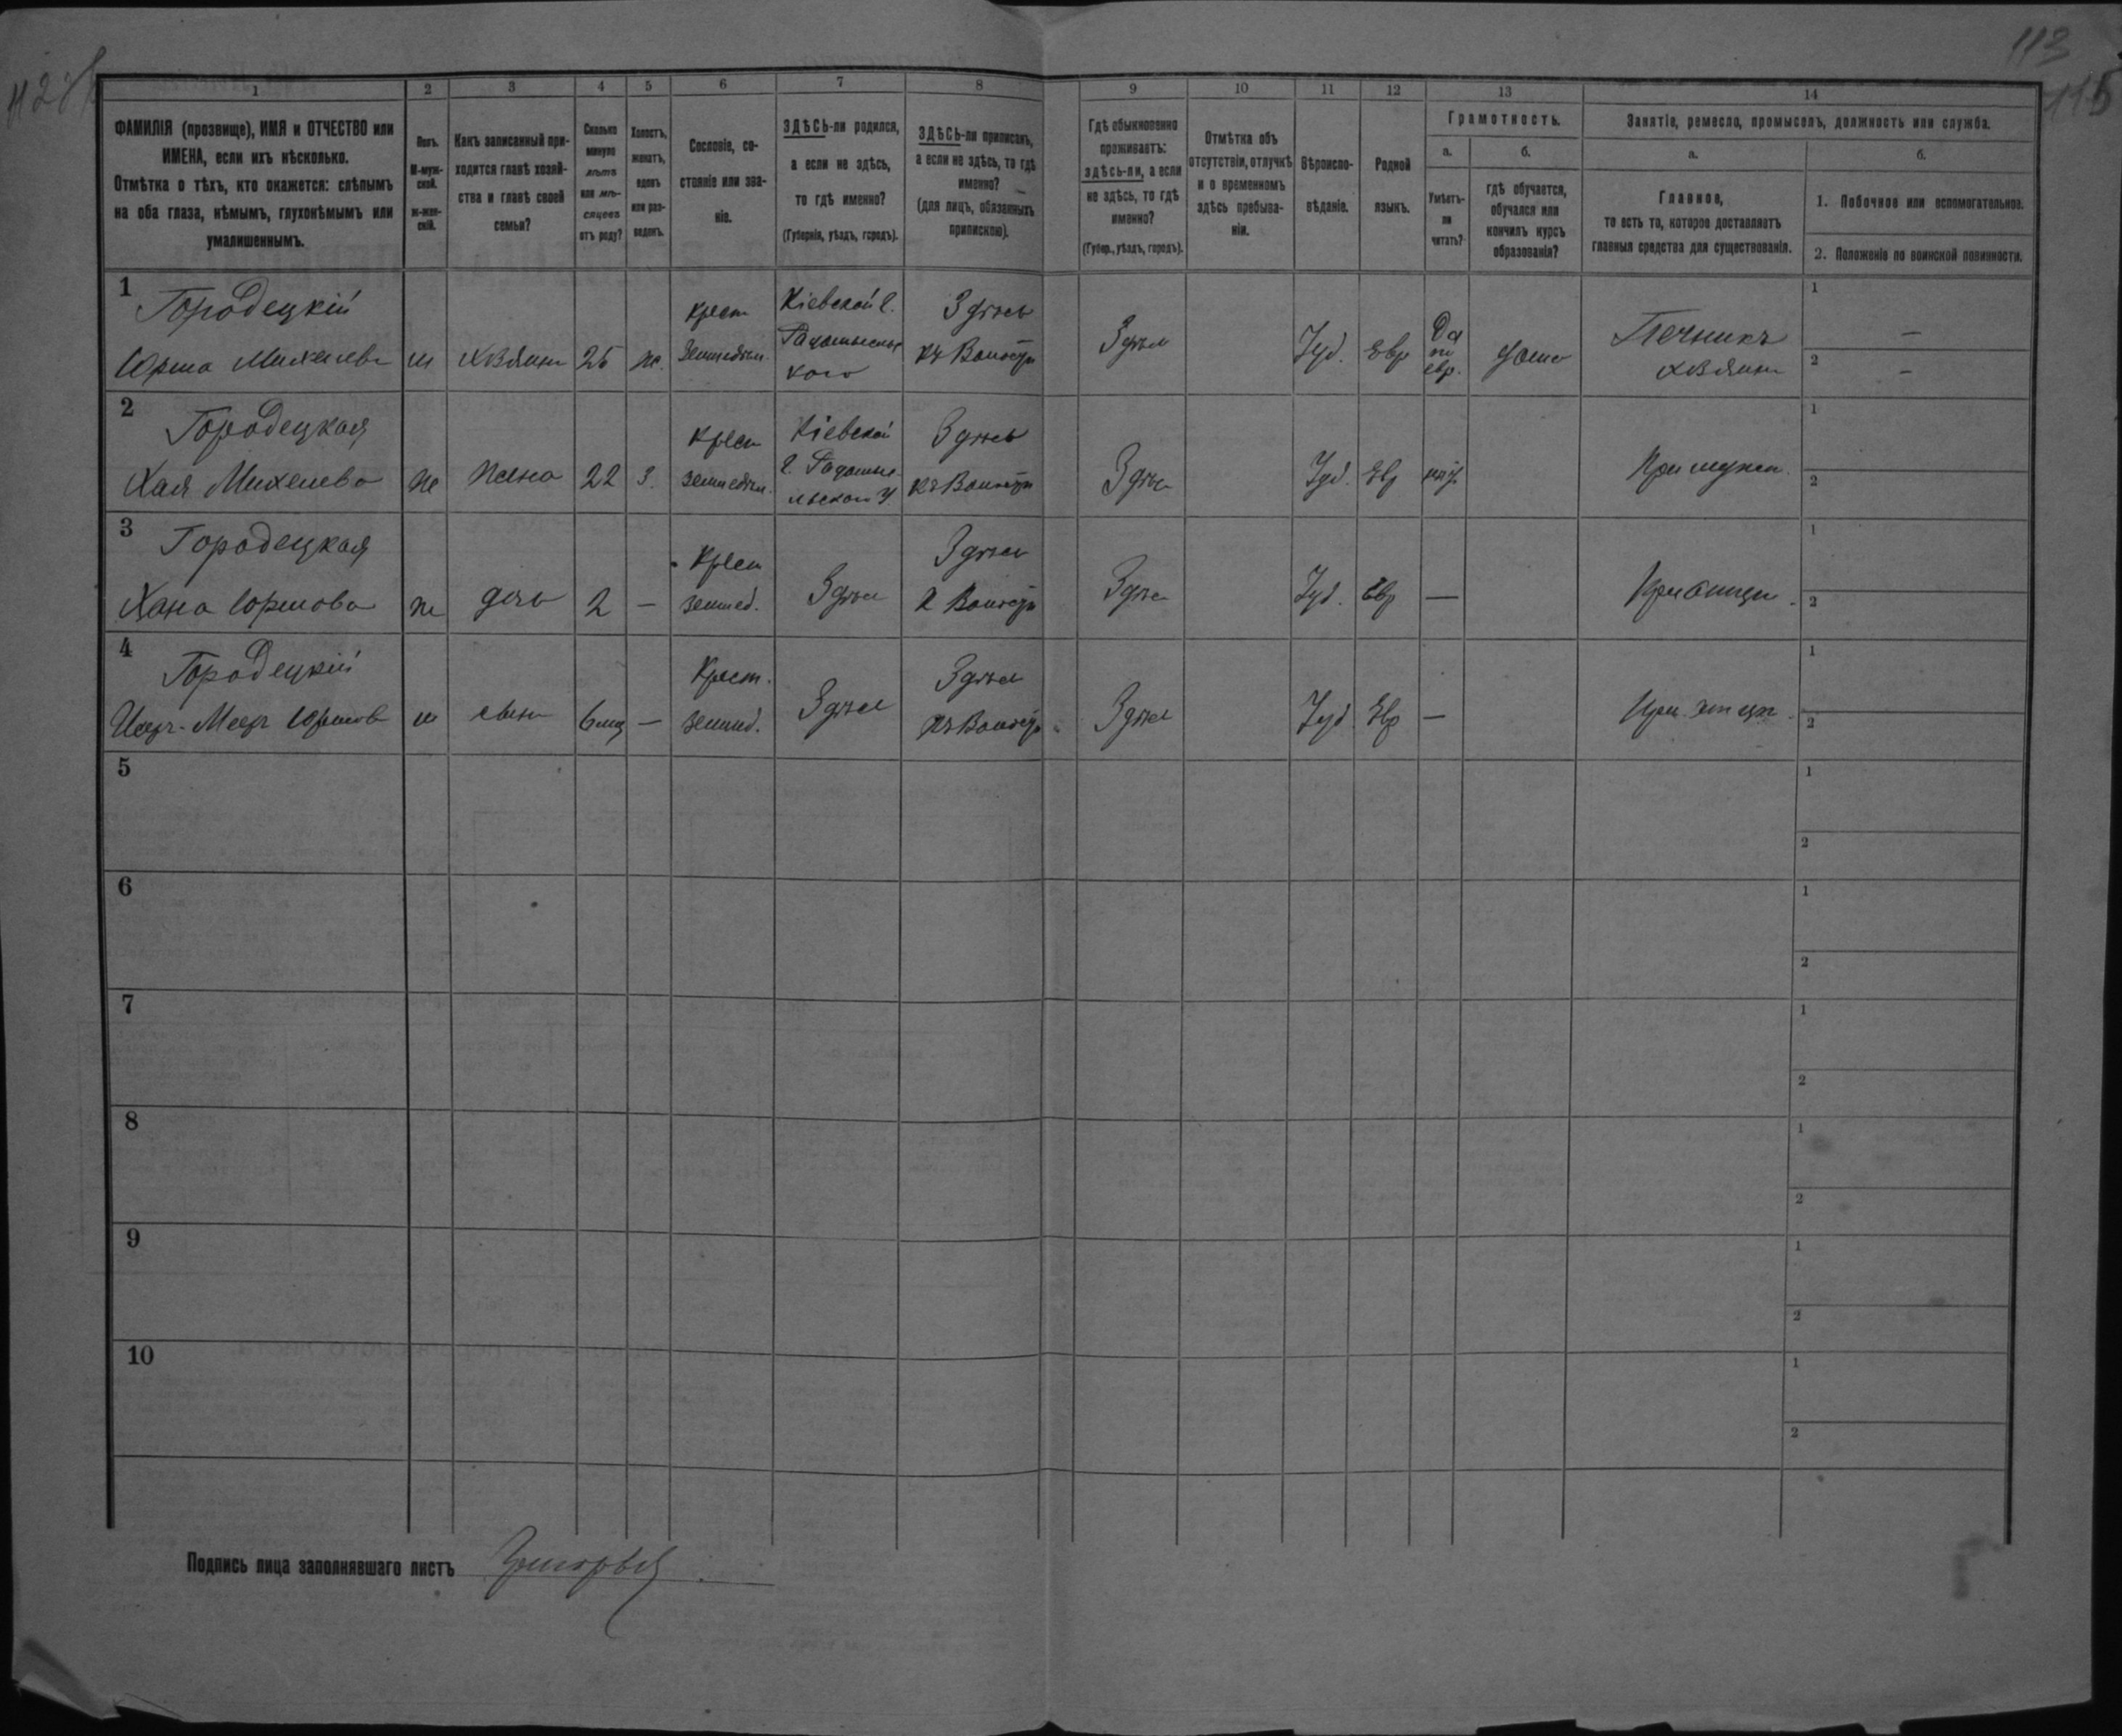 113
115
1
2
3
4
5
6
7
8
9
10
11
12
13
14
ФАМИЛІЯ (прозвище), ИМЯ и ОТЧЕСТВО или
ИМЕНА, если ихъ нѣсколько.
Отмѣтка о тѣхъ, кто окажется: слѣпымъ
на оба глаза, нѣмымъ, глухонѣмымъ или
умалишеннымъ.
Полъ.
М-муж-
ской.
ж-жен-
скій.
Какъ записанный при-
ходится главѣ хозяй-
ства и главѣ своей
семьи?
Сколько
минуло
лѣтъ
или мѣ-
сяцевъ
отъ роду?
Холостъ,
женатъ,
вдовъ
или раз-
веденъ.
Сословіе, со-
стояніе или зва-
ніе.
ЗДѢСЬ-ли родился,
а если не здѣсь,
то гдѣ именно?
(Губернія, уѣздъ, городъ).
ЗДѢСЬ-ли приписанъ,
а если не здѣсь, то гдѣ
именно?
(для лицъ, обязанныхъ
припискою).
Гдѣ обыкновенно
проживаетъ:
здѣсь-ли, а если
не здѣсь, то гдѣ
именно?
(Губер., уѣздъ, городъ).
Отмѣтка объ
отсутствіи, отлучкѣ
и о временномъ
здѣсь пребыва-
ніи.
Вѣроиспо-
вѣданіе.
Родной
языкъ.
Грамотность.
а.
Умѣетъ-
ли
читать?
б.
гдѣ обучается,
обучался или
кончилъ курсъ
образованія?
Занятіе, ремесло, промыселъ, должность или служба.
а.
Главное,
то есть то, которое доставляетъ
главныя средства для существованія.
б.
1. Побочное или вспомогательное.
2. Положеніе по воинской повинности.
1
Городецкій
м
Хозяинъ
25
ж.
Крест
земледѣл.
Кіевской г.
Здѣсь
Здѣсь
Іуд.
Евр
Да
по
евр.
дома
Печникъ
хозяинъ
1
–
2
–
2
Городецкая
Хая Михелева
ж
жена
22
з.
Крест
земледѣл.
Кіевской
Здѣсь
Здѣсь
Іуд.
Евр
При мужѣ
1
2
3
Городецкая
Хана
ж
дочь
2
–
Крест
землед.
Здѣсь
Здѣсь
Здѣсь
Іуд.
Евр
—
При отцѣ
1
2
4
Городецкій
м
сынъ
6 мѣц
—
Крест.
землед.
Здѣсь
Здѣсь
Здѣсь
Іуд
Евр
—
При отцѣ
1
2
5
1
2
6
1
2
7
1
2
8
1
2
9
1
2
10
1
2
Подпись лица заполнявшаго листъ